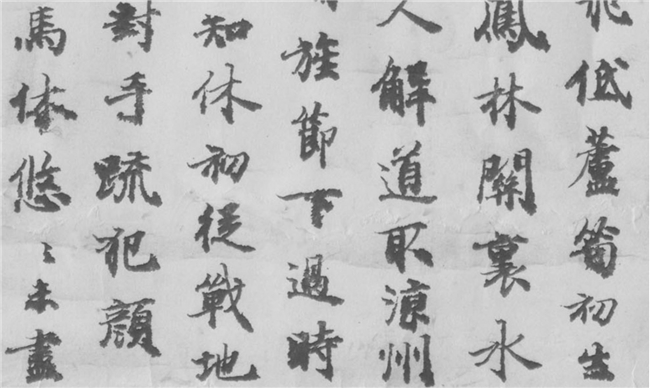 飛低蘆筍初生
鳳林關裏水
人解道取涼州
旌節下過時
知休初從戰地
對手疏犯顏
馬休悠〻未盡